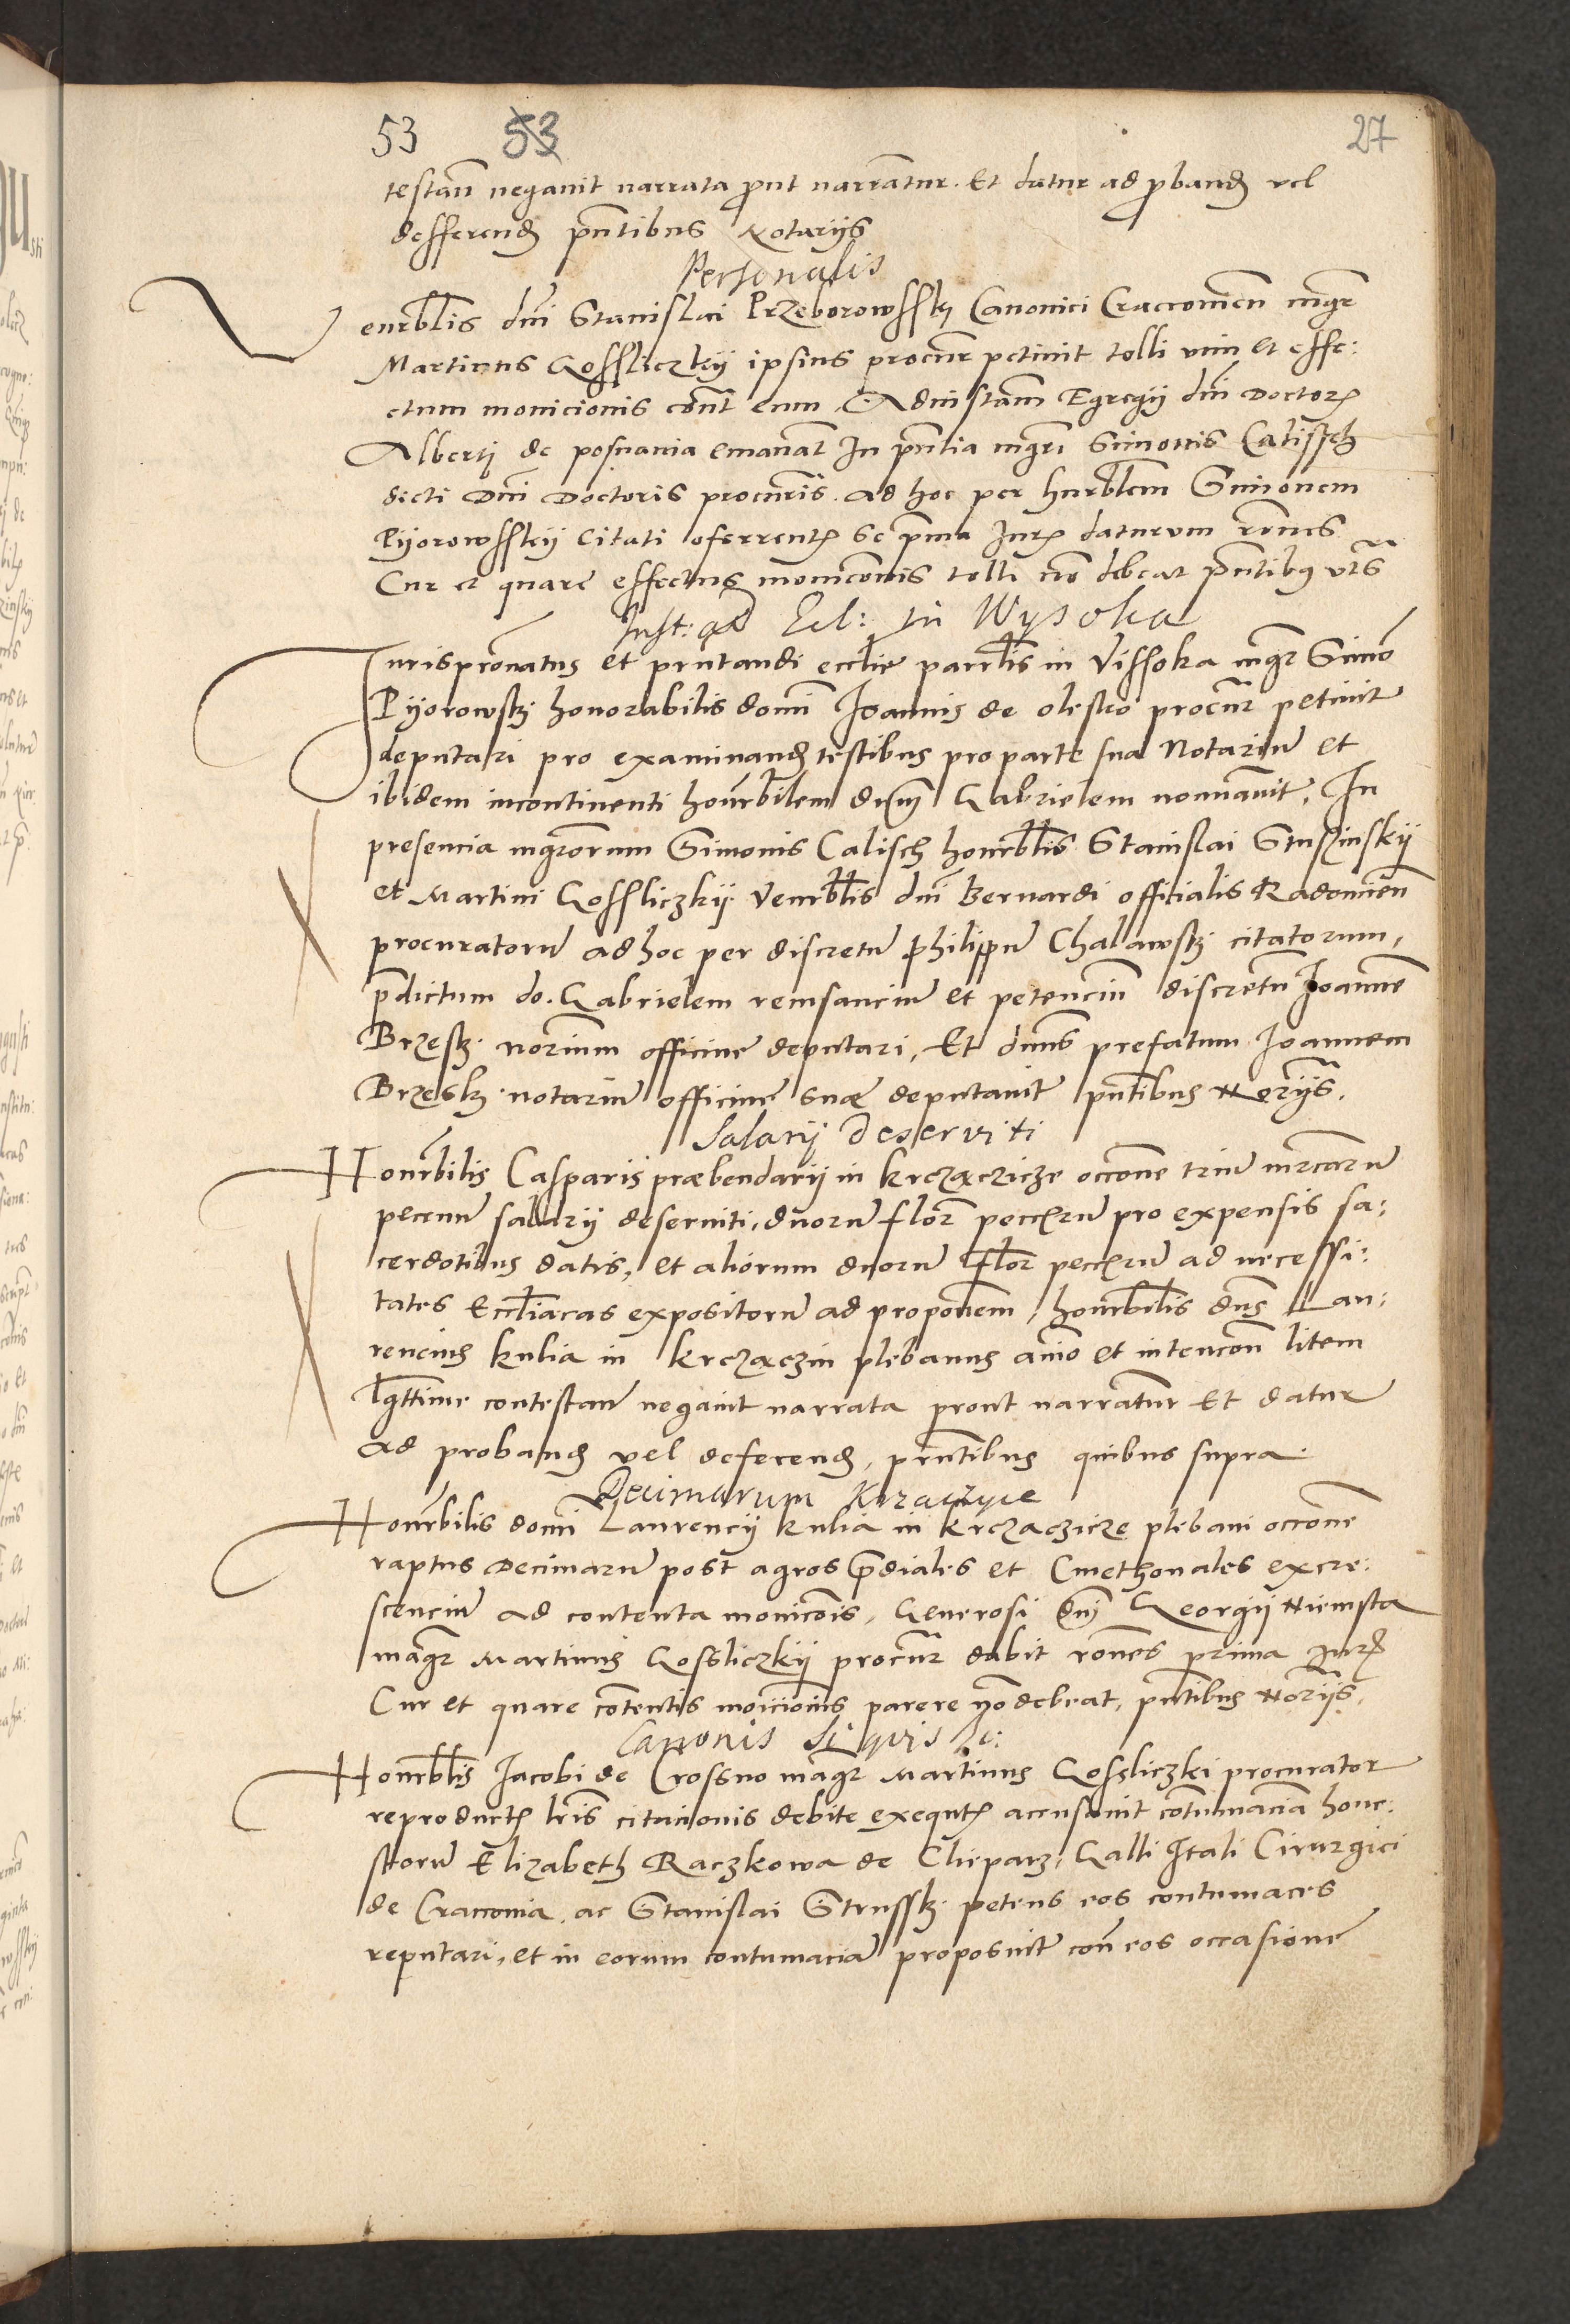 53 53 27
testan̄ negauit narrata prout narrantur. Et datur ad proband vel
defferend pn̄tibus Notarijs
Personalis
Venerblis dn̄i Stanislai Przeborowssky Canonici Cracouien̄ mgr̄
Martinus Gossliczkij ipsius procur petiuit tolli vim et effe:
ctum monicionis cont eum Ad instam Egregij dn̄i Doctor
Alberti de posnania emanat In pn̄tia mgr̄i Simonis Calissch
dicti Dn̄i Doctoris procuris. ad hoc per hnrblem Simonem
Pijorowsskij Citati oferrent se prima Jur daturum rones
Cur et quare effectus monicionis tolli no debeat pn̄tibus vts
Inst: ad Ecl: in Wysoka
Jurispronatus et prn̄tandi ecclie parrlis in Vissoka mgr̄ Simo
Pijorowsky honorabilis domi Joannis de olesko procur petiuit
deputari pro examinand testibus pro parte sua Notariu et
ibidem incontinenti honrbilem dnm Gabrielem nominauit. In
presencia mgrorum Simonis Calisch honrblis Stanislai Struszinskij
et Martini Gossliczkij Venrblis dn̄i Bernardi officialis Radomien̄
procuratoru ad hoc per discretu philippu Chalawsky citatorum,
pdictum do. Gabrielem remsanciu et petenciu discretu Joanne
Brzesky norium officine deputari, Et dnus prefatum Joannem
Brzesky notariu officine suae deputauit pn̄tibus Norijs.
Salarij deserviti
Honrbilis Casparis praebendarij in krczączicze occone triu mrcaru
pecuniu salarij deseruiti, duoru flor pecciru pro expensis sa:
cerdotibus datis, et aliorum duoru flor pecciru ad necessi:
tates Eccliacas expositoru ad proponem, honrbilis dns Lau:
rencius kulia in krczączin plebanus animo et intencon litem
lgttime contestan negauit narrata prout narratur Et datur
ad proband vel deferend, prn̄tibus quibus supra
Decimarum Krzaczyce
Honrbilis domi Laurencij kulia in krczaczicze plebani occone
raptus Decimaru post agros prediales et Cmethonales excre:
scenciu ad contenta monicois, Generosi dni Georgij Niemsta
magr Martinus Gossliczkij procur dabit rones prima Jur
Cur et quare cotentis moicionis parere no debeat, pn̄tibus Norijs.
Canonis Si quis &c:
Honrblis Jacobi de Crossno magr Martinus Gossliczki procurator
reproduct lris citacionis debite exequt accusauit cotumacia hone:
storu Elizabeth Raczkowa de Cleparz, Galli Itali Cirurgici
de Cracouia, ac Stanislai Strussky petens eos contumaces
reputari, et in eorum contumacia proposuit con eos occasione